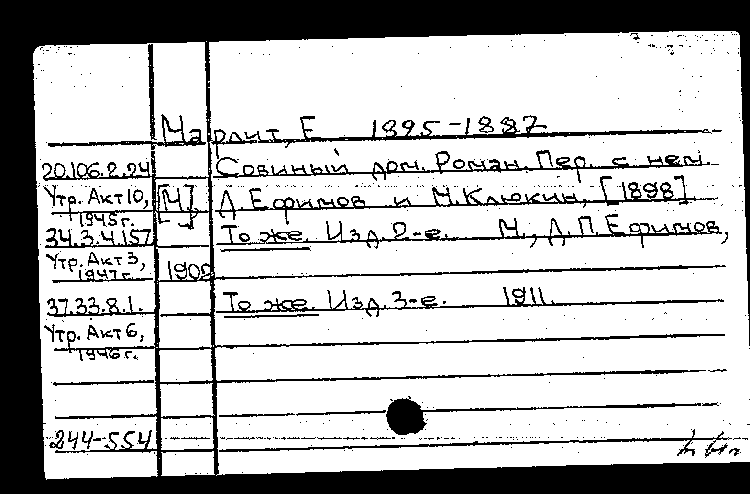 Марлит, Е 1895-1887
20.106.2.24 Совиный дом. Роман. Пер. с нем.
Утр. Акт 10, 1945 г. [М], Д. Ефимов и М. Клюкин, [1898].
34.3.4.157 То же. Изд. 2-е. М., Д. П. Ефимов,
Утр. Акт 3, 1947 г. 1902
37.33.8.1. То же. Изд. 3-е. 1911.
Утр. Акт 6, 1946 г.
244-554